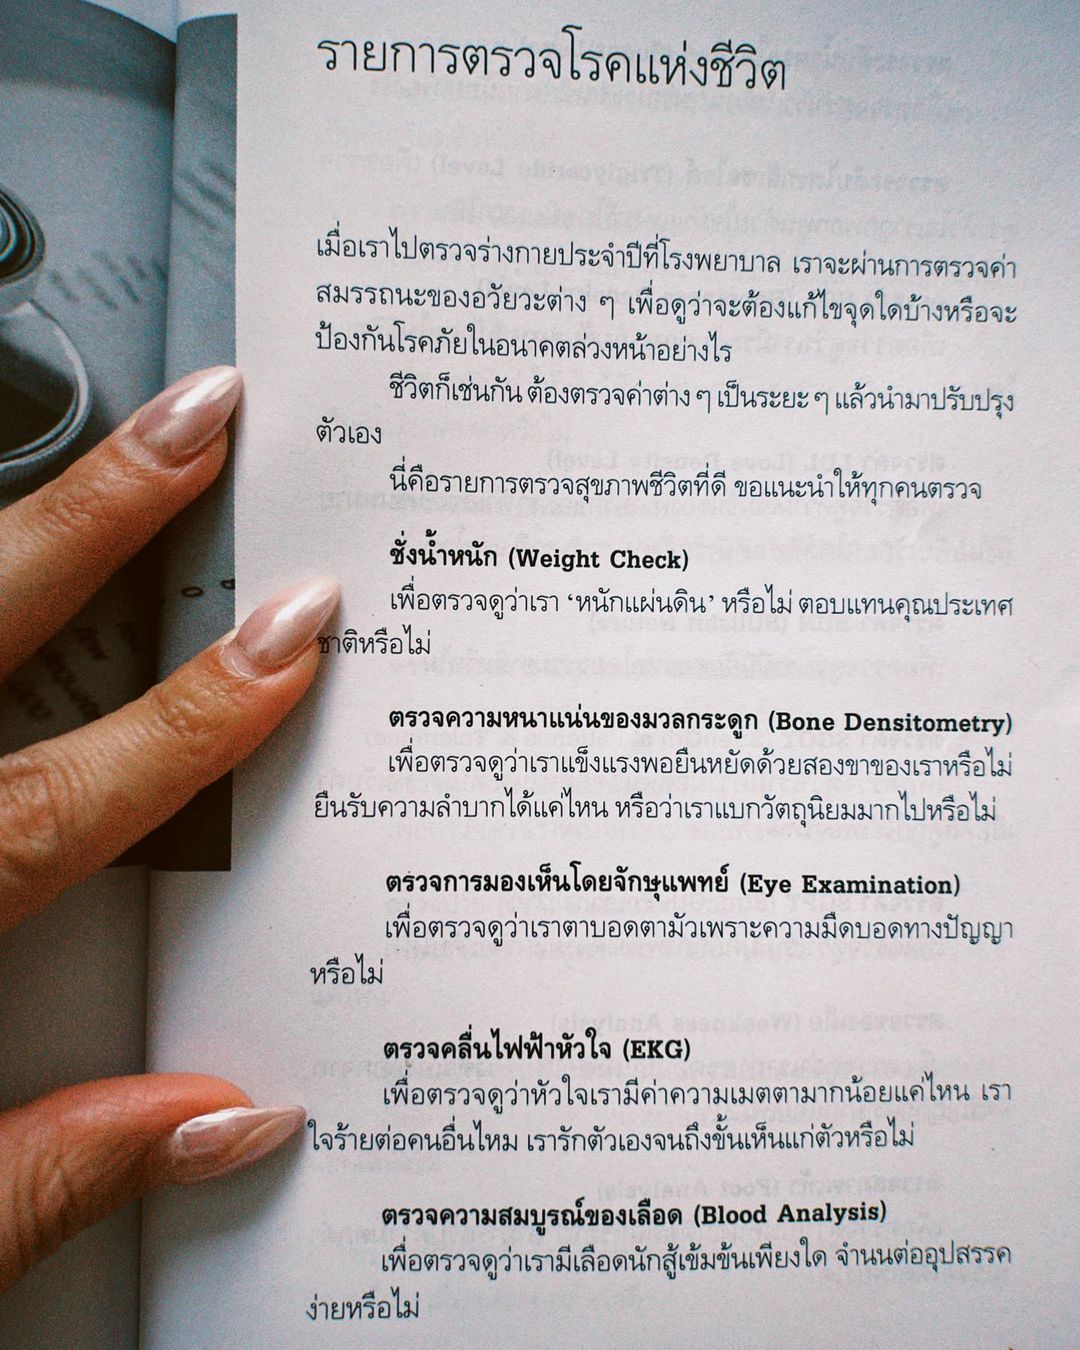 รายการตรวจโรคแห่งชีวิต
เมื่อเราไปตรวจร่างกายประจำปีที่โรงพยาบาล เราจะผ่านการตรวจค่า
สมรรถนะของอวัยวะต่าง ๆ เพื่อดูว่าจะต้องแก้ไขจุดใดบ้างหรือจะ
ป้องกันโรคภัยในอนาคตล่วงหน้าอย่างไร
ชีวิตก็เช่นกัน ต้องตรวจค่าต่าง ๆ เป็นระยะ ๆ แล้วนำมาปรับปรุง
ตัวเอง
นี่คือรายการตรวจสุขภาพชีวิตที่ดี ขอแนะนำให้ทุกคนตรวจ
ชั่งน้ำหนัก (Weight Check)
เพื่อตรวจดูว่าเรา ‘หนักแผ่นดิน’ หรือไม่ ตอบแทนคุณประเทศ
ชาติหรือไม่
ตรวจความหนาแน่นของมวลกระดูก (Bone Densitometry)
เพื่อตรวจดูว่าเราแข็งแรงพอยืนหยัดด้วยสองขาของเราหรือไม่
ยืนรับความลำบากได้แค่ไหน หรือว่าเราแบกวัตถุนิยมมากไปหรือไม่
ตรวจการมองเห็นโดยจักษุแพทย์ (Eye Examination)
เพื่อตรวจดูว่าเราตาบอดตามัวเพราะความมืดบอดทางปัญญา
หรือไม่
ตรวจคลื่นไฟฟ้าหัวใจ (EKG)
เพื่อตรวจดูว่าหัวใจเรามีค่าความเมตตามากน้อยแค่ไหน เรา
ใจร้ายต่อคนอื่นไหม เรารักตัวเองจนถึงขั้นเห็นแก่ตัวหรือไม่
ตรวจความสมบูรณ์ของเลือด (Blood Analysis)
เพื่อตรวจดูว่าเรามีเลือดนักสู้เข้มข้นเพียงใด จำนนต่ออุปสรรค
ง่ายหรือไม่